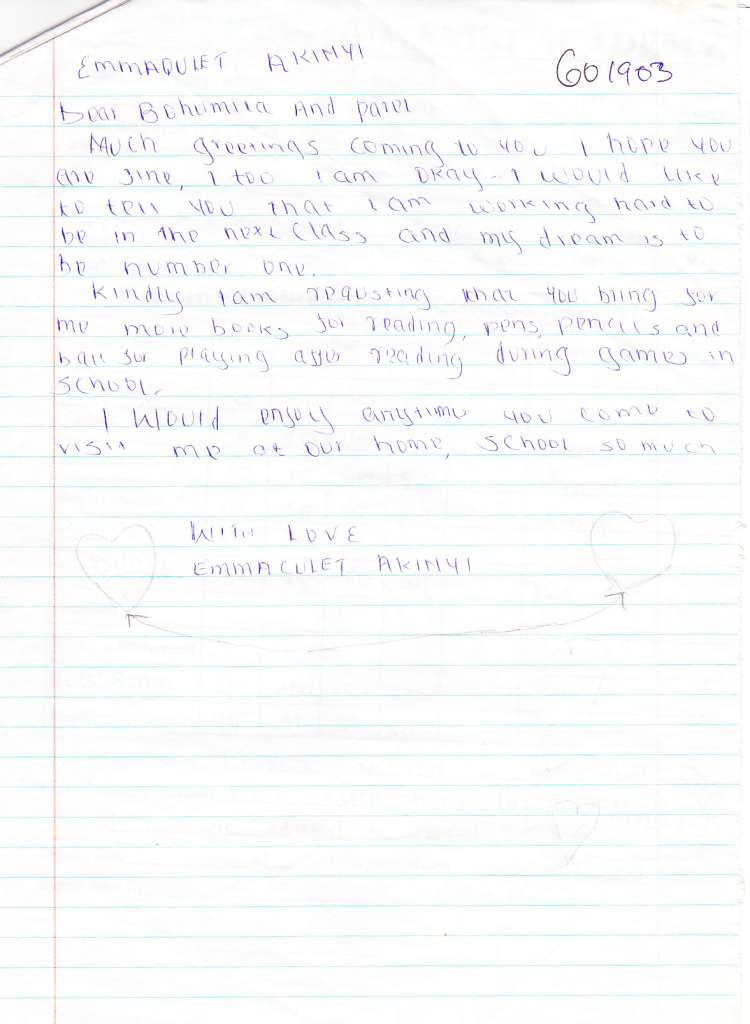 EMMAQULET AKINYI
601903
Dear Bohumila And pavel
Much greetings coming to you I hope you
are fine, I too I am okay. I would like
to tell you that I am working hard to
be in the next class and my dream is to
be number one.
Kindly I am requsting that you bring for
me more books for reading, pens, pencils and
ball for playing after reading during games in
school.
I Would enjoy anytime you come to
visit me at our home, school so much
WITH LOVE
EMMACULET AKINYI